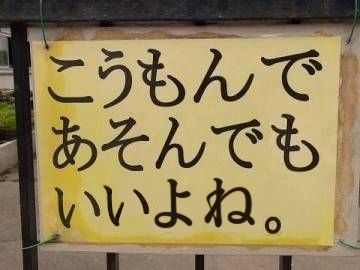 こうもんで
あそんでも
いいよね。